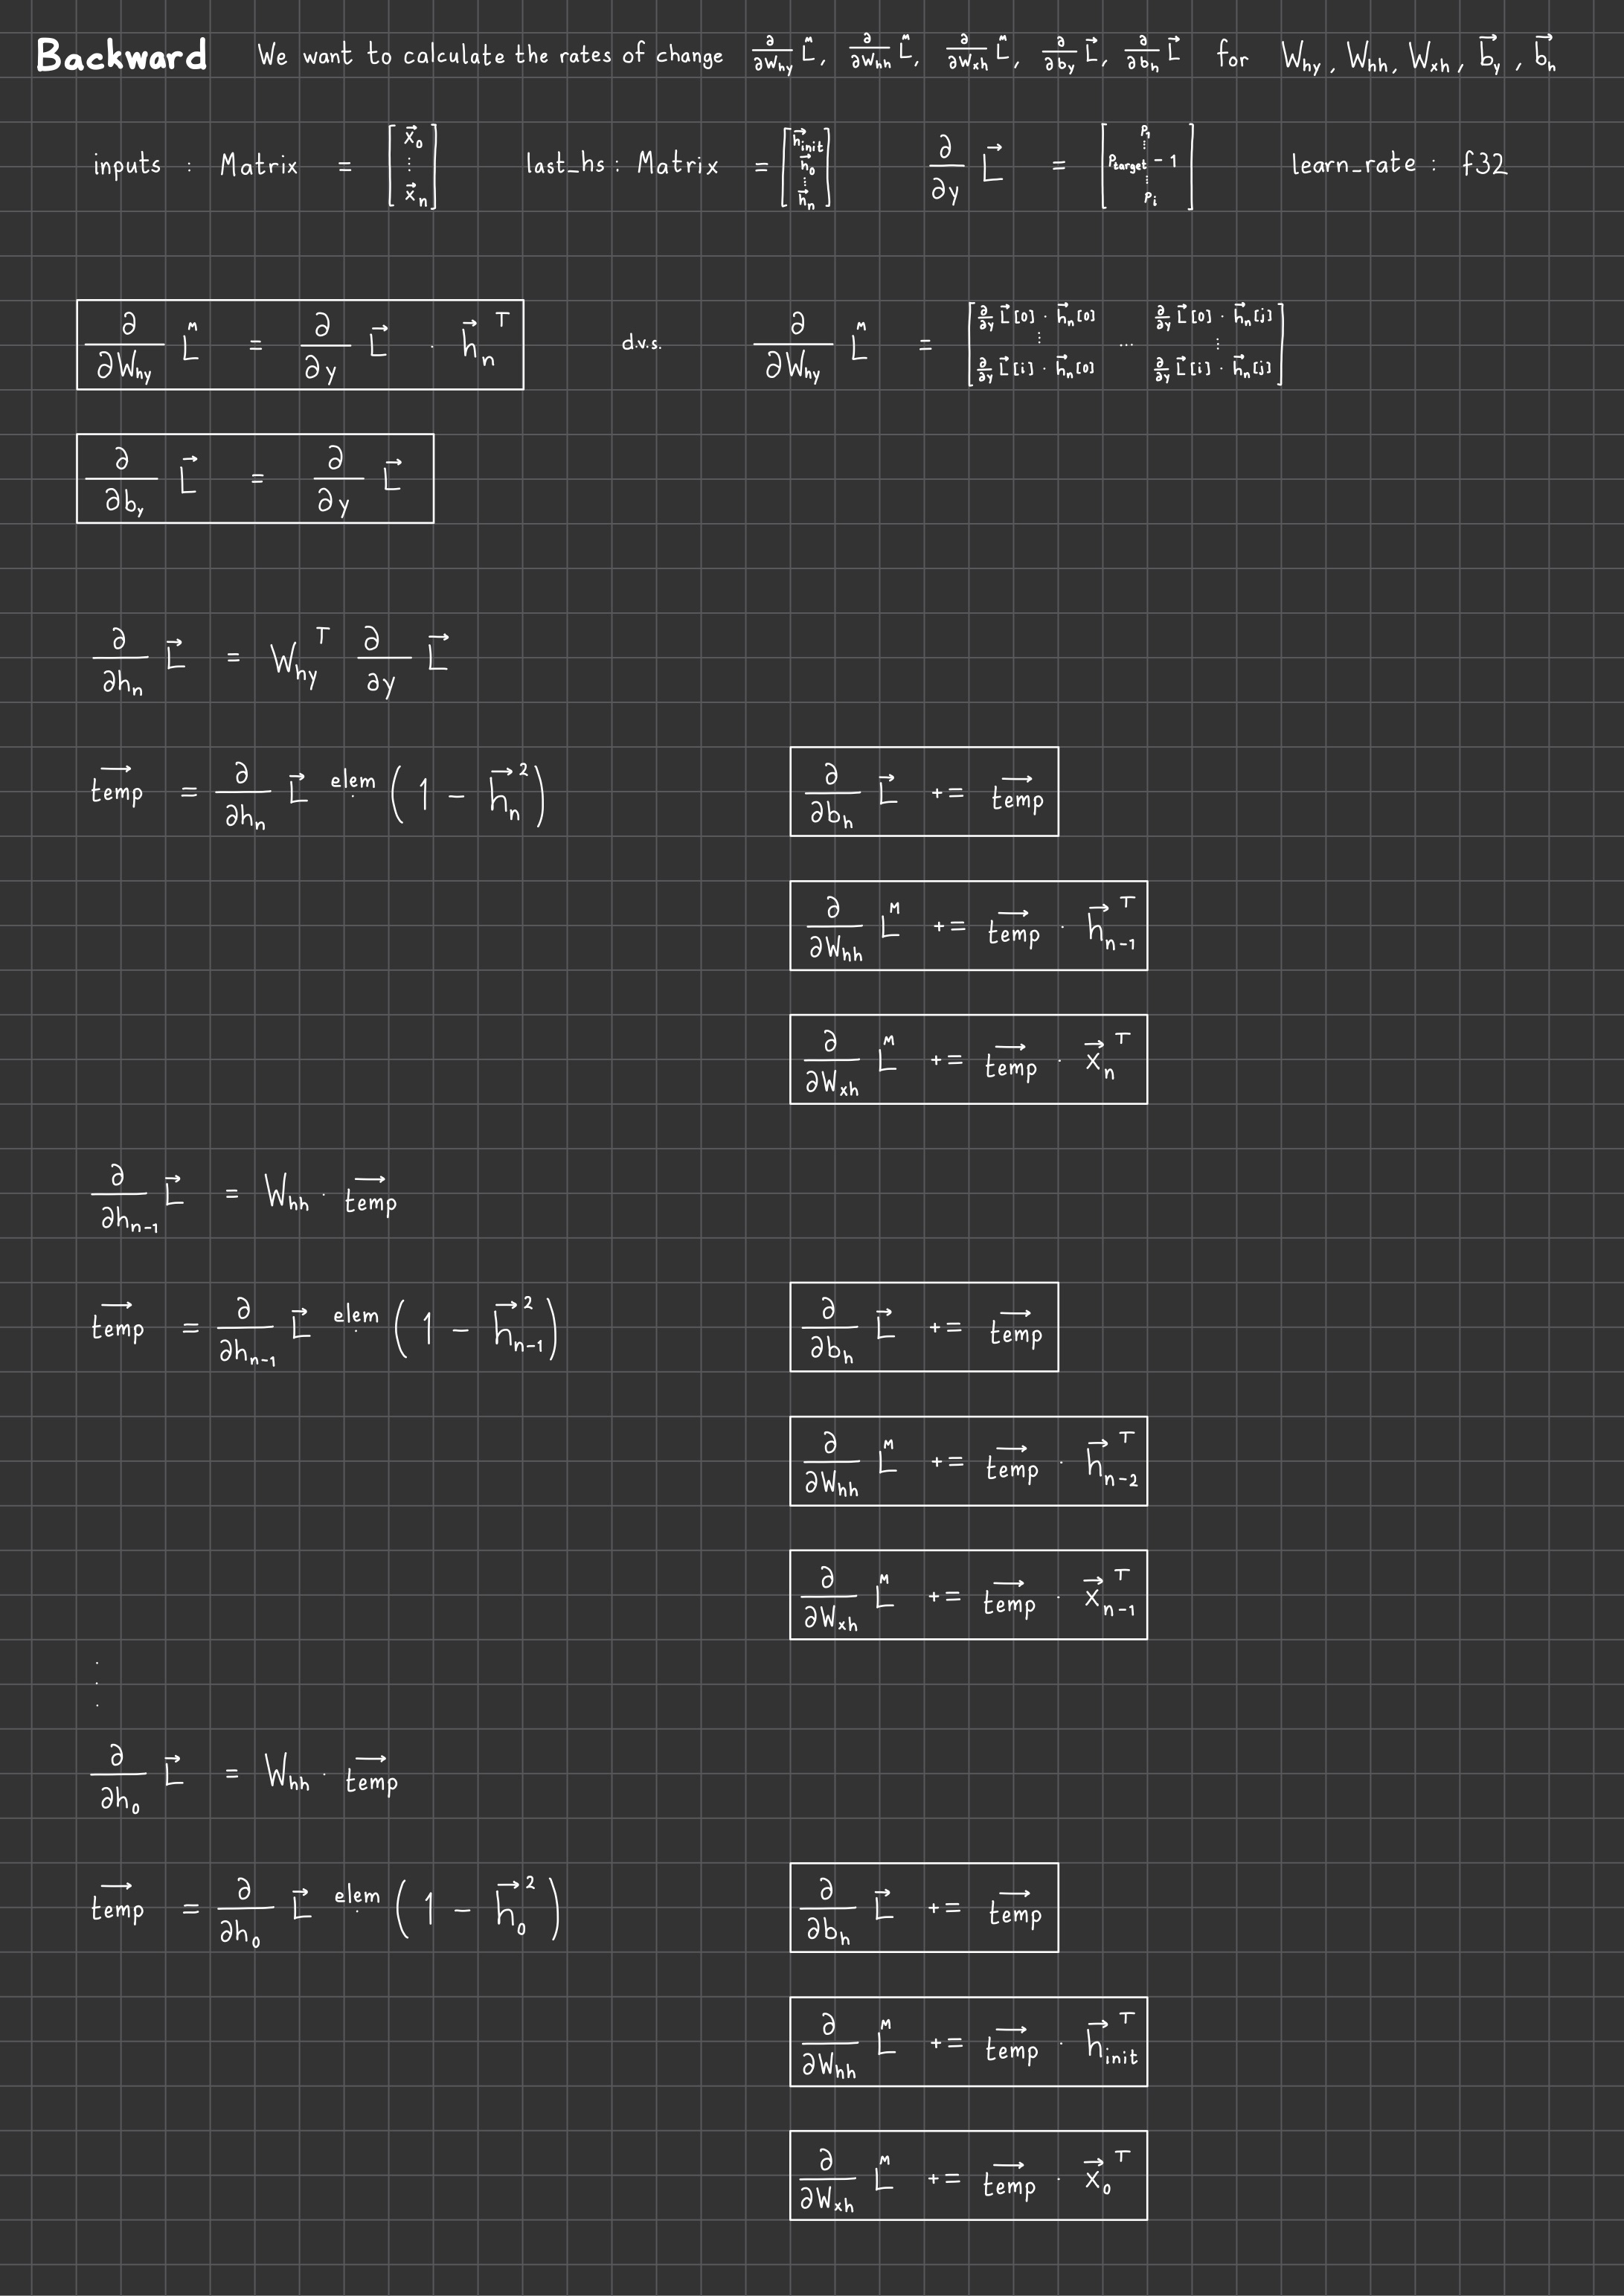 Backward We want to calculate the rates of change ∂/∂W_hy L^M, ∂/∂W_hh L^M, ∂/∂W_xh L^M, ∂/∂b_y L⃗, ∂/∂b_h L⃗ for W_hy, W_hh, W_xh, b⃗_y, b⃗_h
inputs : Matrix = [x⃗_0 ⋮ x⃗_n] last_hs : Matrix = [h⃗_init h⃗_0 ⋮ h⃗_n] ∂/∂y L⃗ = [p_1 ⋮ p_target - 1 ⋮ p_i] learn_rate : f32
∂/∂W_hy L^M = ∂/∂y L⃗ · h⃗_n^T d.v.s. ∂/∂W_hy L^M = [∂/∂y L⃗[0] · h⃗_n[0] ⋮ ∂/∂y L⃗[i] · h⃗_n[0] ... ∂/∂y L⃗[0] · h⃗_n[j] ⋮ ∂/∂y L⃗[i] · h⃗_n[j]]
∂/∂b_y L⃗ = ∂/∂y L⃗
∂/∂h_n L⃗ = W_hy^T ∂/∂y L⃗
temp = ∂/∂h_n L⃗ elem· (1 - h⃗_n^2) ∂/∂b_h L⃗ += temp
∂/∂W_hh L^M += temp · h⃗_n-1^T
∂/∂W_xh L^M += temp · x⃗_n^T
∂/∂h_n-1 L⃗ = W_hh · temp
temp = ∂/∂h_n-1 L⃗ elem· (1 - h⃗_n-1^2) ∂/∂b_h L⃗ += temp
∂/∂W_hh L^M += temp · h⃗_n-2^T
∂/∂W_xh L^M += temp · x⃗_n-1^T
⋮
∂/∂h_0 L⃗ = W_hh · temp
temp = ∂/∂h_0 L⃗ elem· (1 - h⃗_0^2) ∂/∂b_h L⃗ += temp
∂/∂W_hh L^M += temp · h⃗_init^T
∂/∂W_xh L^M += temp · x⃗_0^T